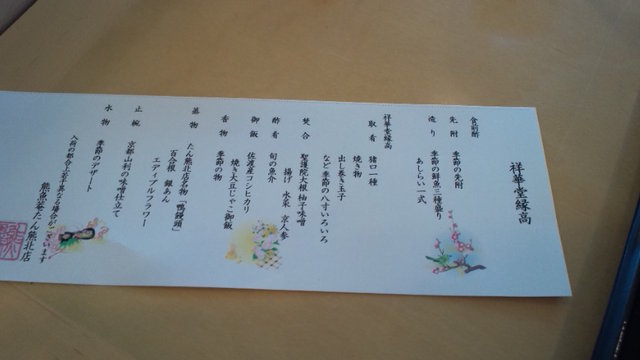 祥華堂縁高
食前酢
先附 季節の先附
造り 季節の鮮魚三種盛り
あしらい一式
祥華堂縁高
取肴 猪口一種
焼き物
出し巻き玉子
など季節の八寸いろいろ
焚合 聖護院大根 柚子味噌
揚げ 水菜 京人参
酢肴 旬の魚介
御飯 佐渡産コシヒカリ
焼き大豆じゃこ御飯
香物 季節の物
蒸物 たん熊北店名物「鴨饅頭」
百合根 銀あん
エディブルフラワー
止椀 京都山利の味噌仕立て
水物 季節のデザート
入荷の都合上若干異なる場合がございます
熊魚菴たん熊北店